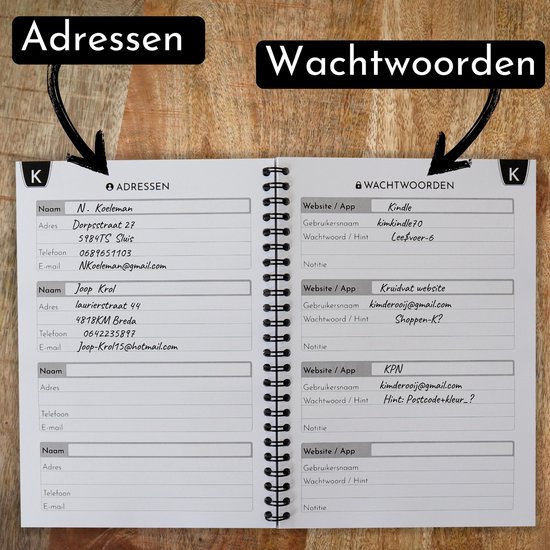 Adressen
Wachtwoorden
K
ADRESSEN
Naam N. Koeleman
Adres Dorpsstraat 27
5984TS Sluis
Telefoon 0689651103
E-mail NKoeleman@gmail.com
Naam Joop Krol
Adres laurierstraat 44
4818KM Breda
Telefoon 0642235897
E-mail Joop-Krol15@hotmail.com
Naam
Adres
Telefoon
E-mail
Naam
Adres
Telefoon
E-mail
WACHTWOORDEN
K
Website / App Kindle
Gebruikersnaam kimkindle70
Wachtwoord / Hint Lee$voer-6
Notitie
Website / App Kruidvat website
Gebruikersnaam kimderooij@gmail.com
Wachtwoord / Hint Shoppen-K?
Notitie
Website / App KPN
Gebruikersnaam kimderooij@gmail.com
Wachtwoord / Hint Hint: Postcode+kleur_?
Notitie
Website / App
Gebruikersnaam
Wachtwoord / Hint
Notitie